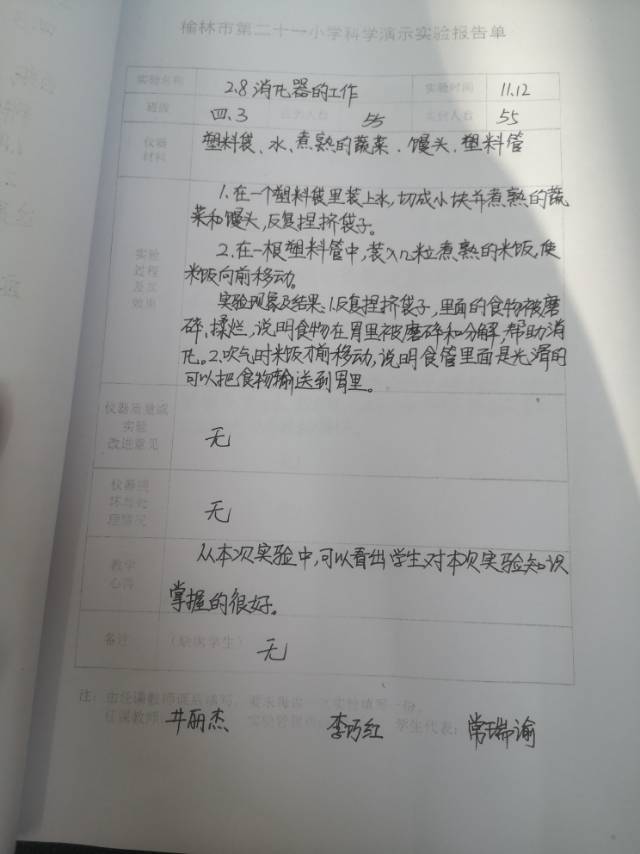 榆林市第二十一小学科学演示实验报告单
实验名称 2.8消化器的工作 实验时间 11.12
班级 四.3 55 实做人数 55
仪器材料 塑料袋、水、煮熟的蔬菜、馒头、塑料管
实验过程及效果
1.在一个塑料袋里装上水,切成小块并煮熟的蔬
菜和馒头,反复捏挤袋子。
2.在一根塑料管中,装入几粒煮熟的米饭,使
米饭向前移动。
实验现象及结果:1.反复捏挤袋子,里面的食物被磨
碎、揉烂,说明食物在胃里被磨碎和分解,帮助消
化。2.吹气时米饭才前移动,说明食管里面是光滑的
可以把食物输送到胃里。
仪器质量或实验改进意见 无
仪器损坏与处理情况 无
教学心得
从本次实验中,可以看出学生对本次实验知识
掌握的很好。
备注 (缺席学生) 无
注:由任课教师课后填写,要求每做一次实验填写一份。
任课教师 井丽杰 李巧红 学生代表: 常瑞谕